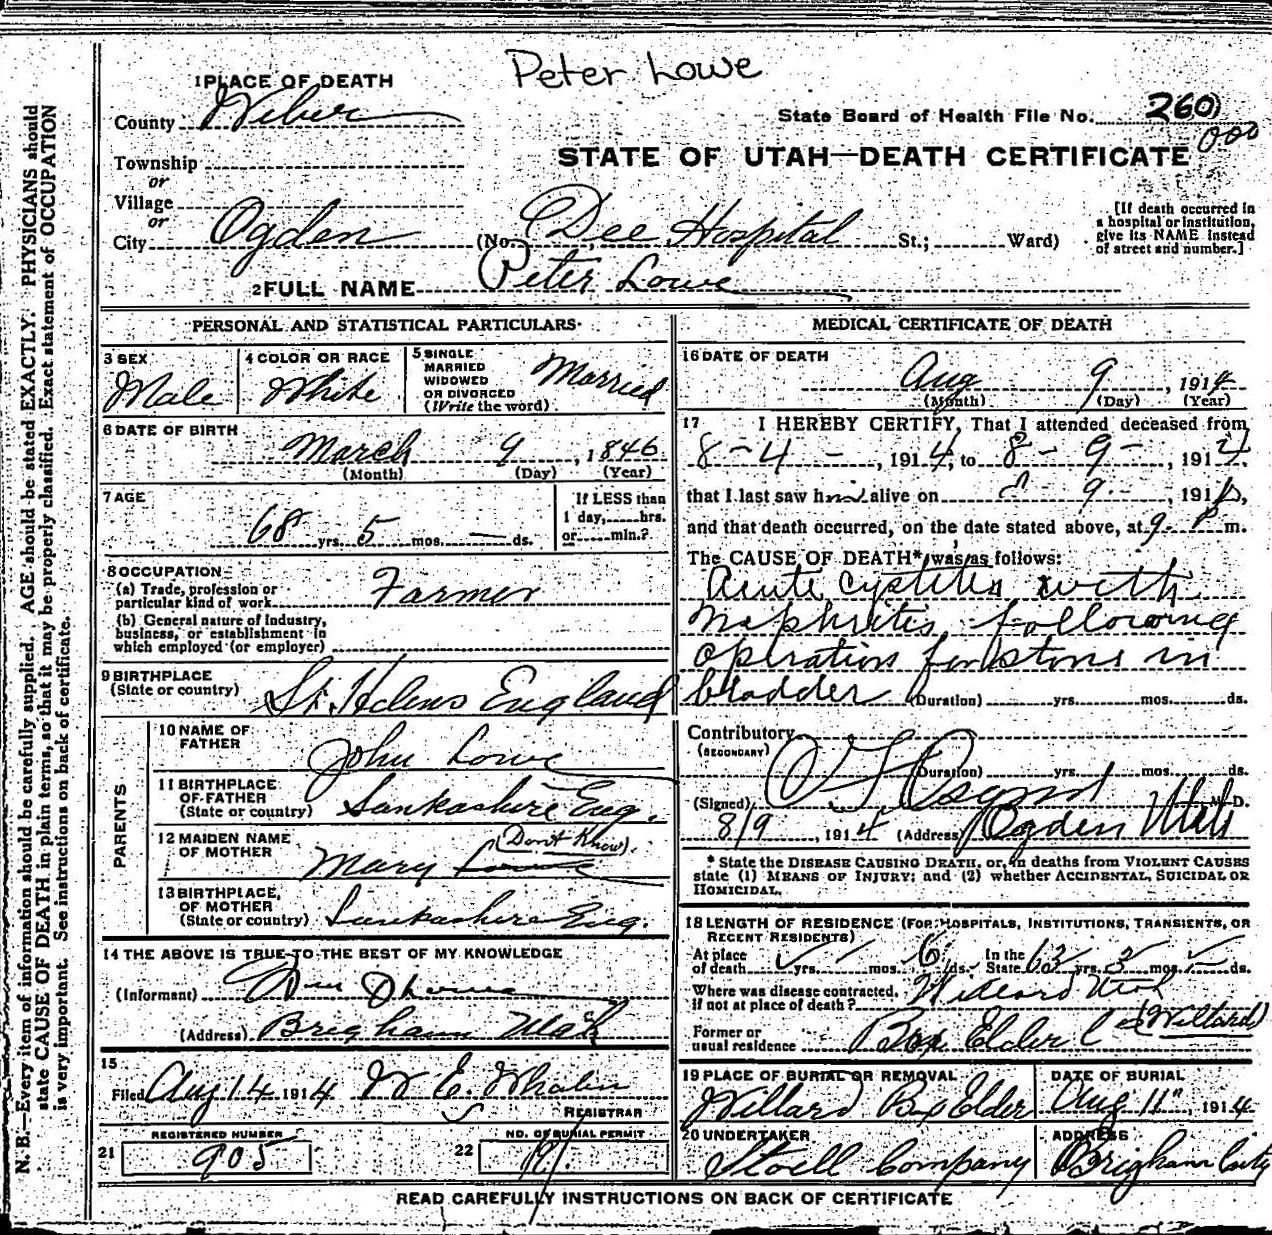 Peter Lowe
1 PLACE OF DEATH
County Weber
State Board of Health File No. 260
000
STATE OF UTAH—DEATH CERTIFICATE
Township
or
Village
or
City Ogden (No. Dee Hospital St.; Ward)
[If death occurred in
a hospital or institution,
give its NAME instead
of street and number.]
2 FULL NAME Peter Lowe
PERSONAL AND STATISTICAL PARTICULARS
3 SEX
Male
4 COLOR OR RACE
White
5 SINGLE
MARRIED
WIDOWED
OR DIVORCED
(Write the word)
Married
6 DATE OF BIRTH
March 9, 1846
(Month) (Day) (Year)
7 AGE
68 yrs. 5 mos. — ds.
If LESS than
1 day, hrs.
or min.?
8 OCCUPATION
(a) Trade, profession or
particular kind of work Farmer
(b) General nature of industry,
business, or establishment in
which employed (or employer)
9 BIRTHPLACE
(State or country) St. Helens England
PARENTS
10 NAME OF
FATHER John Lowe
11 BIRTHPLACE
OF FATHER
(State or country) Lankashire Eng.
12 MAIDEN NAME
OF MOTHER Mary Lowe (Don't Know)
13 BIRTHPLACE
OF MOTHER
(State or country) Lankashire Eng.
14 THE ABOVE IS TRUE TO THE BEST OF MY KNOWLEDGE
(Informant) Wm Lowe
(Address) Brigham Utah
15
Filed Aug 14 1914 W E Whalen
REGISTRAR
21 REGISTERED NUMBER
905
22 NO. OF BURIAL PERMIT
191
MEDICAL CERTIFICATE OF DEATH
16 DATE OF DEATH
Aug 9, 1914
(Month) (Day) (Year)
17 I HEREBY CERTIFY, That I attended deceased from
8-4-, 1914, to 8-9-, 1914.
that I last saw him alive on 8 9-, 191
and that death occurred, on the date stated above, at 9 P m.
The CAUSE OF DEATH* was as follows:
Acute cystitis with
Nephritis following
operation for stone in
bladder (Duration) yrs. mos. ds.
Contributory
(SECONDARY)
(Duration) yrs. mos. ds.
(Signed) M.D.
8/9, 1914 (Address) Ogden Utah
* State the DISEASE CAUSING DEATH, or, in deaths from VIOLENT CAUSES
state (1) MEANS OF INJURY; and (2) whether ACCIDENTAL, SUICIDAL OR
HOMICIDAL.
18 LENGTH OF RESIDENCE (FOR HOSPITALS, INSTITUTIONS, TRANSIENTS, OR
RECENT RESIDENTS)
At place of death yrs. mos. 6 ds. In the State 63 yrs. mos. ds.
Where was disease contracted,
if not at place of death? Willard Utah
Former or
usual residence Box Elder C (Willard)
19 PLACE OF BURIAL OR REMOVAL
Willard Box Elder
DATE OF BURIAL
Aug 11", 1914
20 UNDERTAKER
Stoell Company
ADDRESS
Brigham City
READ CAREFULLY INSTRUCTIONS ON BACK OF CERTIFICATE
N. B.—Every item of information should be carefully supplied. AGE should be stated EXACTLY. PHYSICIANS should
state CAUSE OF DEATH in plain terms, so that it may be properly classified. Exact statement of OCCUPATION
is very important. See instructions on back of certificate.